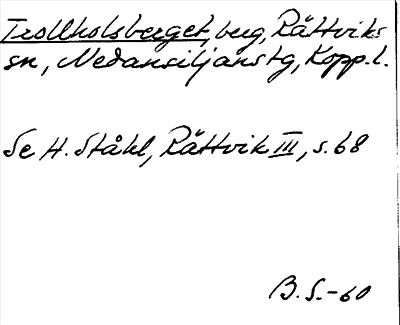 Trollholsberget, berg, Rättviks
sn, Nedansiljanstg, Kopp. l.
Se H. Ståhl, Rättvik III, s. 68
B. S. -60